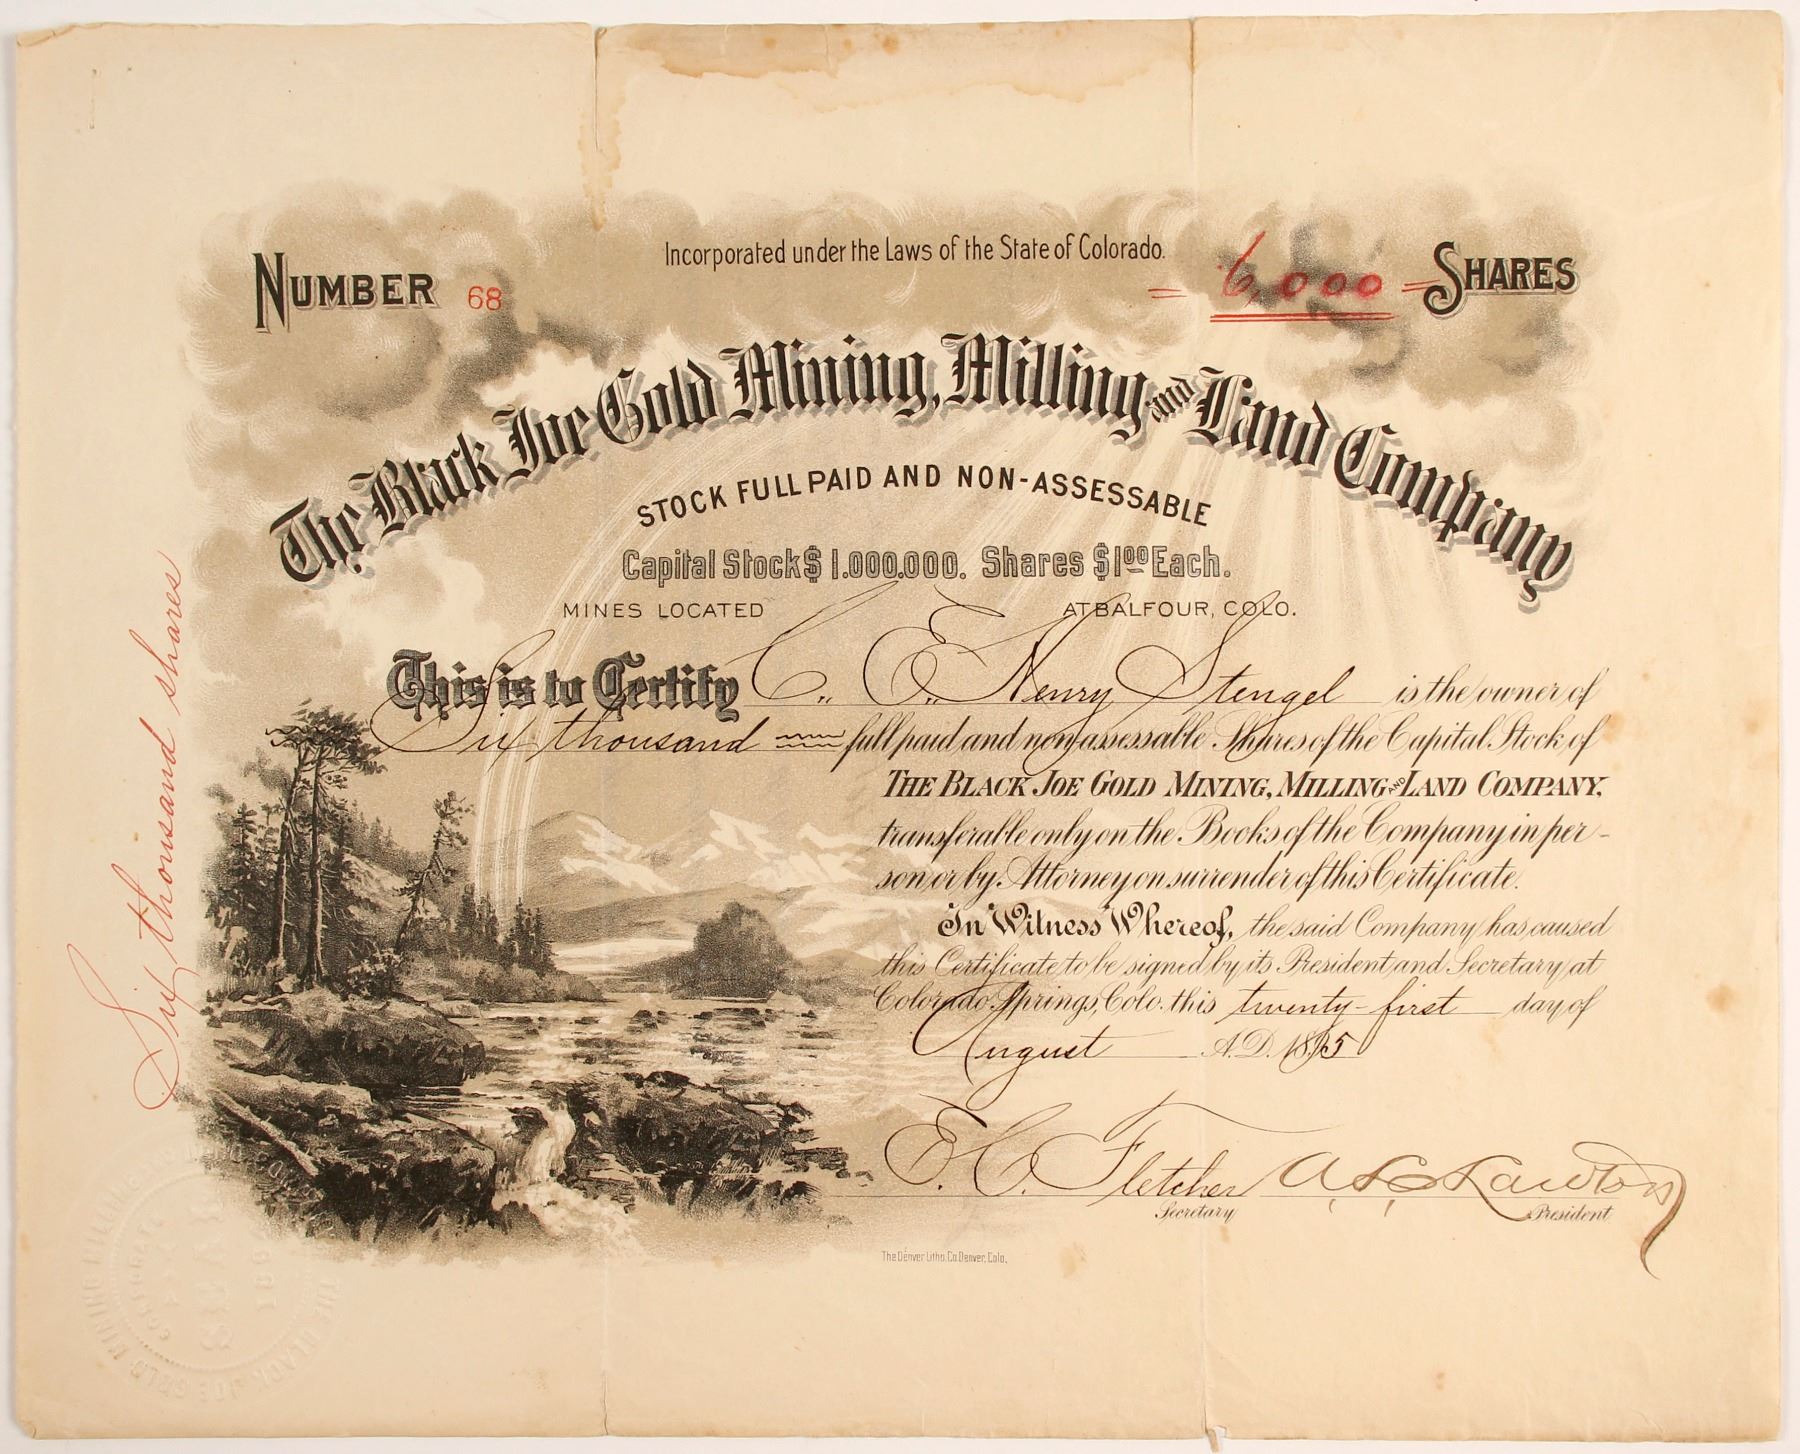 Incorporated under the Laws of the State of Colorado.
NUMBER 68
= 6,000 = SHARES
The Black Joe Gold Mining, Milling and Land Company
STOCK FULL PAID AND NON-ASSESSABLE
Capital Stock $ 1.000.000. Shares $1 00 Each.
MINES LOCATED AT BALFOUR, COLO.
This is to Certify C. E. Henry Stengel is the owner of
Six thousand full paid and non assessable Shares of the Capital Stock of
THE BLACK JOE GOLD MINING, MILLING AND LAND COMPANY,
transferable only on the Books of the Company in per-
son or by Attorney on surrender of this Certificate.
In Witness Whereof, the said Company has caused
this Certificate to be signed by its President and Secretary at
Colorado Springs, Colo. this twenty-first day of
August A.D. 1895
E. C. Fletcher
Secretary
President
The Denver Litho. Co. Denver, Colo.
Six thousand shares
THE BLACK JOE GOLD MINING MILLING